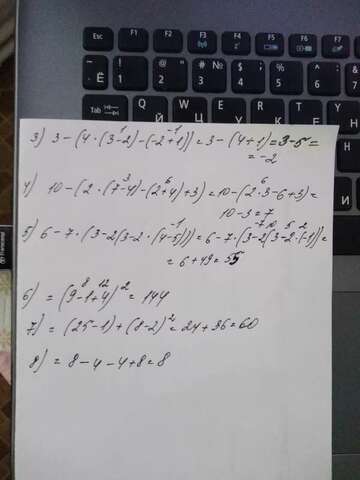 Esc F1 F2 F3 F4 F5 F6 F7
Ё ! 1 " 2 № # 3 ; $ 4 % 5 : 6
Tab Q Й W Ц E У R К T Е Y Н
1 -1
3) 3-(4·(3-2)-(-2+1))=3-(4+1)=3-5=
=-2
3 6 6
4) 10-(2·(7-4)-(2+4)+3)=10-(2·3-6+3)=
10-3=7
-1 -7 10 5 2
5) 6-7·(3-2(3-2·(4-5)))=6-7·(3-2(3-2·(-1))=
=6+49=55
8 12
6) =(9-1+4)²=144
7) =(25-1)+(8-2)²=24+36=60
8) =8-4-4+8=8